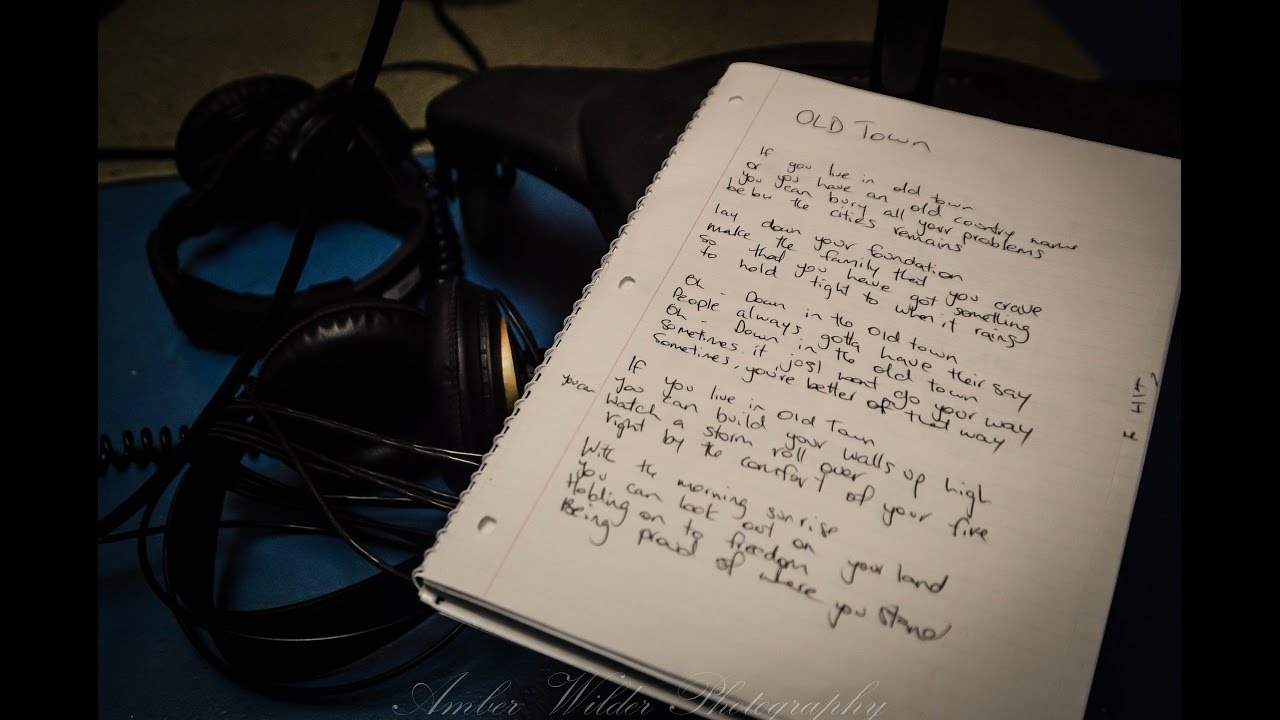 OLD TOWN
If you live in old town
or you have an old country name
you can bury all your problems
below the cities remains
lay down your foundation
make the family that you crave
so that you have got something
to hold tight to when it rains
Oh - Down in the old town
People always gotta have their say
Oh - Down in the old town
sometimes it just wont go your way
sometimes, you're better of that way
If you live in Old Town
You can build your walls up high
you can watch a storm roll over
right by the comfort of your fire
With the morning sunrise
You can look out on your land
Holding on to freedom
Being proud of where you stand
Amber Wilder Photography